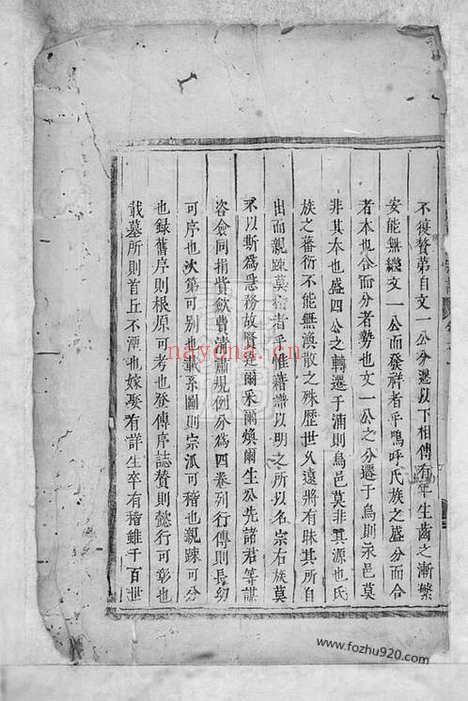 不復贅第自文一公分遷以下相傳有年生齒之漸繁
安能無幾文一公而發祥者乎嗚呼氏族之盛分而合
者本也合而分者勢也文一公之分遷于烏則永邑莫
非其本也盛四公之轉遷于浦則烏邑莫非其源也氏
族之蕃衍不能無渙散之殊歷世久遠將有昧其所自
出而親踈莫辨者乎惟藉譜以明之所以名宗右族莫
不以斯為急務故賢是爾采爾煥爾生公先諸君等謀
咨僉同捐貲歛費清肅規例分為四卷列行傳則長幼
可序也次第可別也載系圖則宗派可稽也親踈可分
也録舊序則根原可考也發傳序誌賛則懿行可彰也
載墓所則首丘不湮也嫁娶有詳生卒有稽雖千百世
nayona.cn
www.fozhu920.com